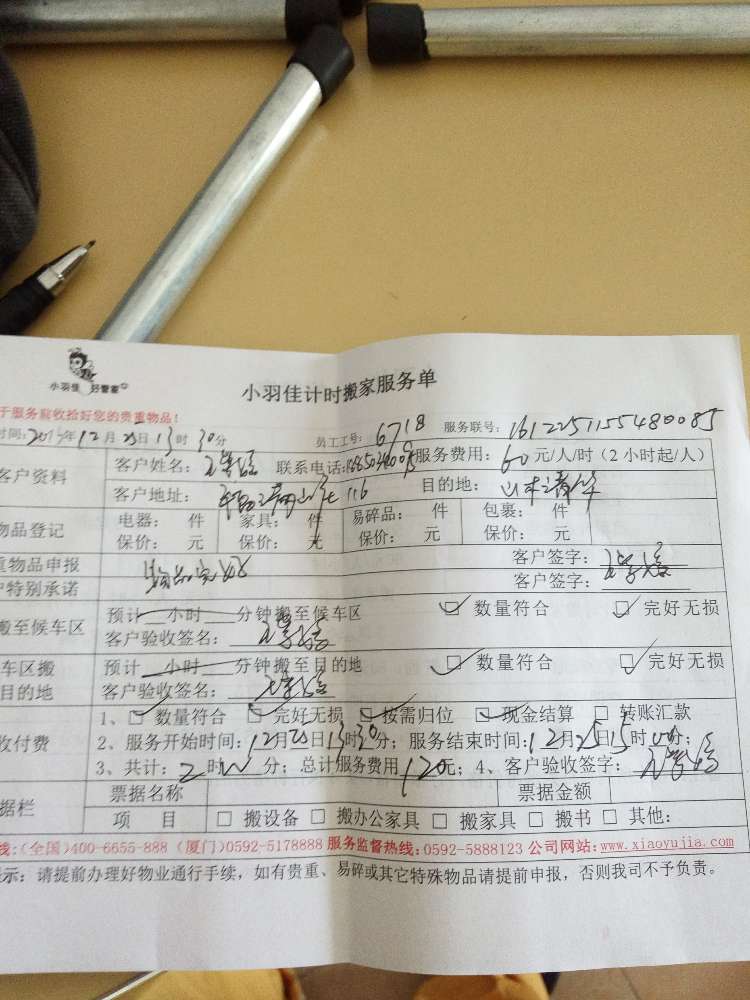 小羽佳 好管家
小羽佳计时搬家服务单
于服务前收拾好您的贵重物品！
时间: 年12月25日13时30分 员工工号: 6718 服务联号: 1612251155480085
客户资料 客户姓名: 联系电话: 服务费用: 60元/人/时（2小时起/人）
客户地址: 116 目的地:
物品登记 电器: 件 家具: 件 易碎品: 件 包裹: 件
保价: 元 保价: 元 保价: 元 保价: 元
重物品申报 物品完好 客户签字:
户特别承诺 客户签字:
搬至候车区 预计 小时 分钟搬至候车区 数量符合 完好无损
客户验收签名:
车区搬 预计 小时 分钟搬至目的地 数量符合 完好无损
目的地 客户验收签名:
收付费 1、 数量符合 完好无损 按需归位 现金结算 转账汇款
2、服务开始时间: 12月 日13时30分; 服务结束时间: 12月25日15时 分;
3、共计: 2时 分; 总计服务费用120元; 4、客户验收签字:
据栏 票据名称 票据金额
项 目 搬设备 搬办公家具 搬家具 搬书 其他:
线:(全国)400-6655-888 (厦门)0592-5178888 服务监督热线:0592-5888123 公司网站:www.xiaoyujia.com
示: 请提前办理好物业通行手续，如有贵重、易碎或其它特殊物品请提前申报，否则我司不予负责。